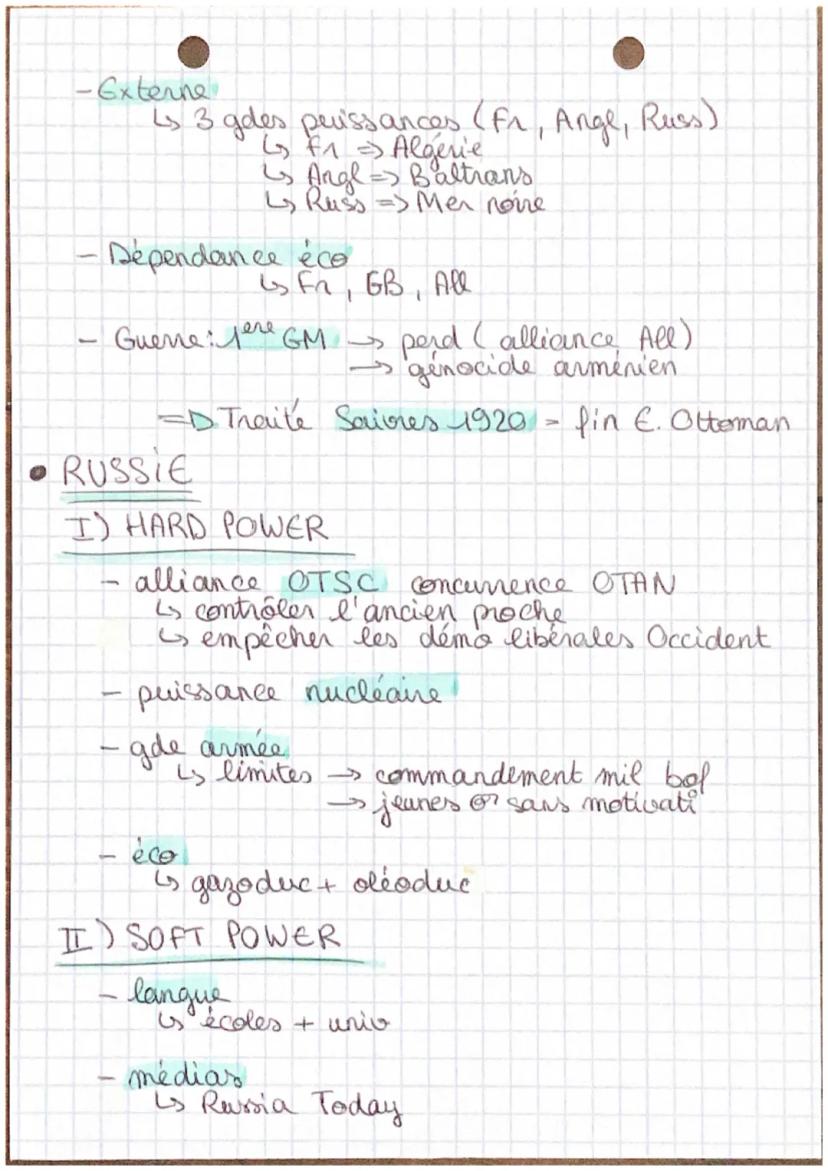 - Externe
↳ 3 gdes puissances (Fr, Angl, Russ)
↳ Fr => Algérie
↳ Angl => Baltrans
↳ Russ => Mer noire
- Dépendance éco
↳ Fr, GB, All
- Guerre: 1ere GM → perd (alliance All)
→ génocide arménien
=> Traité Saivres 1920 = fin E. Ottoman
• RUSSIE
I) HARD POWER
- alliance OTSC concurrence OTAN
↳ contrôler l'ancien proche
↳ empêcher les démo libérales Occident
- puissance nucléaire
- gde armée
↳ limites → commandement mil bof
→ jeunes sans motivati°
- éco
↳ gazoduc + oléoduc
II) SOFT POWER
- langue
↳ écoles + univ
- médias
↳ Russia Today